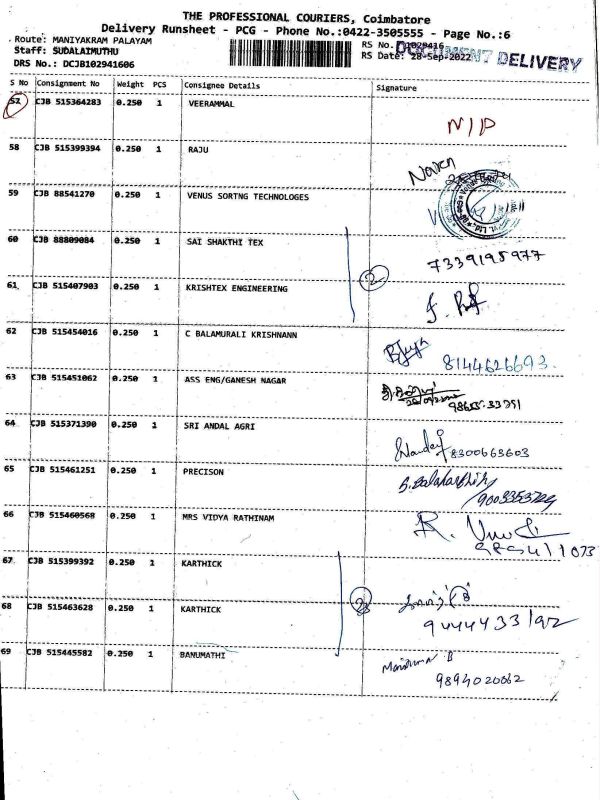 THE PROFESSIONAL COURIERS, Coimbatore
Delivery Runsheet - PCG - Phone No.:0422-3505555 - Page No.:6
Route: MANIYAKRAM PALAYAM
RS No. :1029416
DOCUMENT DELIVERY
Staff: SUDALAIMUTHU
RS Date: 28-Sep-2022
DRS No.: DCJB102941606
S No Consignment No Weight PCS Consignee Details Signature
57 CJB 515364283 0.250 1 VEERAMMAL
N/P
58 CJB 515399394 0.250 1 RAJU
Naven
59 CJB 88541270 0.250 1 VENUS SORTNG TECHNOLOGES
60 CJB 88809084 0.250 1 SAI SHAKTHI TEX
7339195977
2
61 CJB 515407903 0.250 1 KRISHTEX ENGINEERING
62 CJB 515454016 0.250 1 C BALAMURALI KRISHNANN
8144626693.
63 CJB 515451062 0.250 1 ASS ENG/GANESH NAGAR
98655 33751
64 CJB 515371390 0.250 1 SRI ANDAL AGRI
8300663603
65 CJB 515461251 0.250 1 PRECISON
66 CJB 515460568 0.250 1 MRS VIDYA RATHINAM
67 CJB 515399392 0.250 1 KARTHICK
68 CJB 515463628 0.250 1 KARTHICK
69 CJB 515445582 0.250 1 BANUMATHI
9894020062